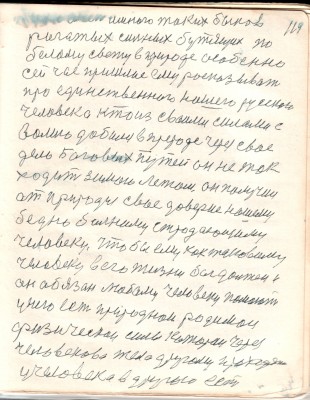 много таких быков 119
рогатых сильных бутющих по
белому свету в природе особенно
сей час пришлос ему росказыват
про единственного нашего русского
человека кто из своими силами с
волию добили в природе через свое
дело Боговых путей он не так
ходит зимою летом он получил
от природы свое доверие нашому
бедно больному страдающему
человеку. Что бы ему как таковому
человеку в его жизни бол должен и
он обязан любому человеку помогат
у него ест природной родимой
физической силы которой через
человекова тело другому
у человека в другого ест